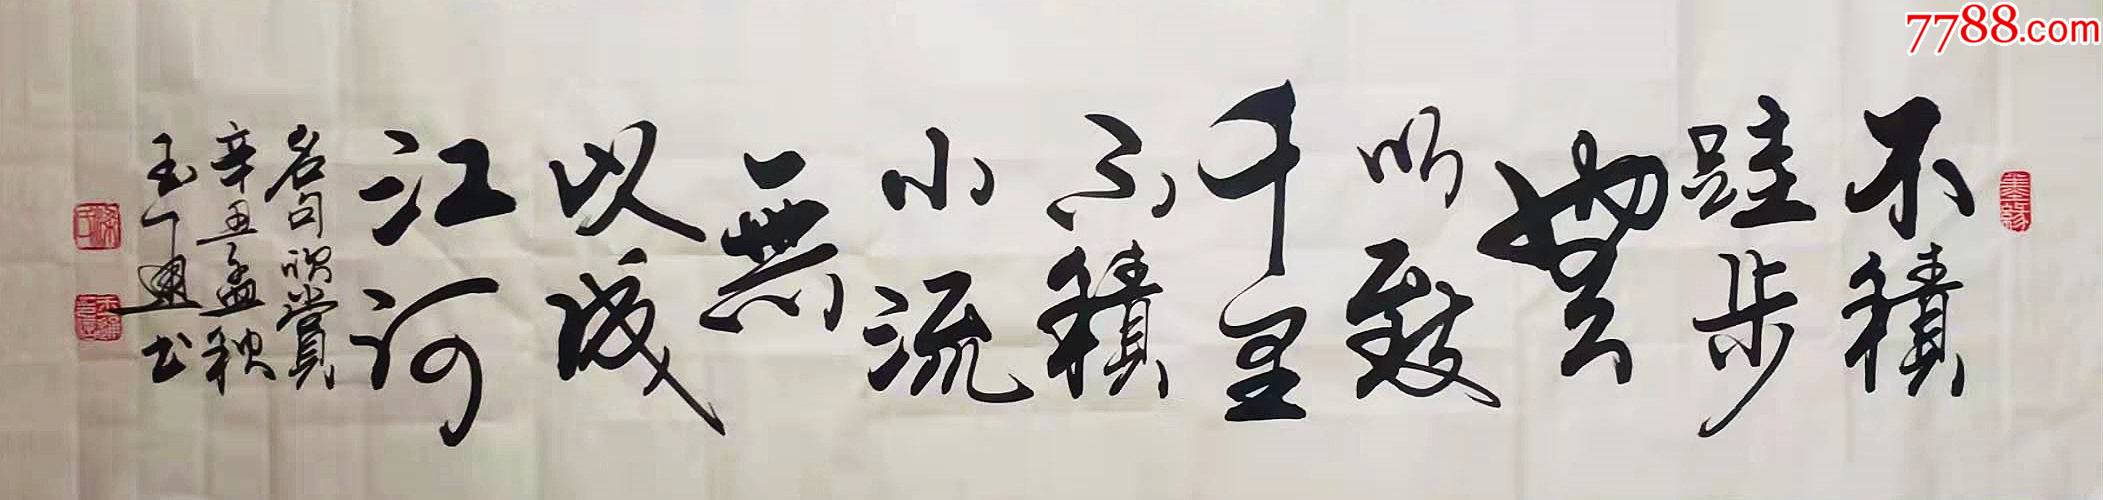 7788.com
不積
跬步
無
以致
千里
不積
小流
無
以成
江河
名句欣賞
辛丑孟秋
玉 书